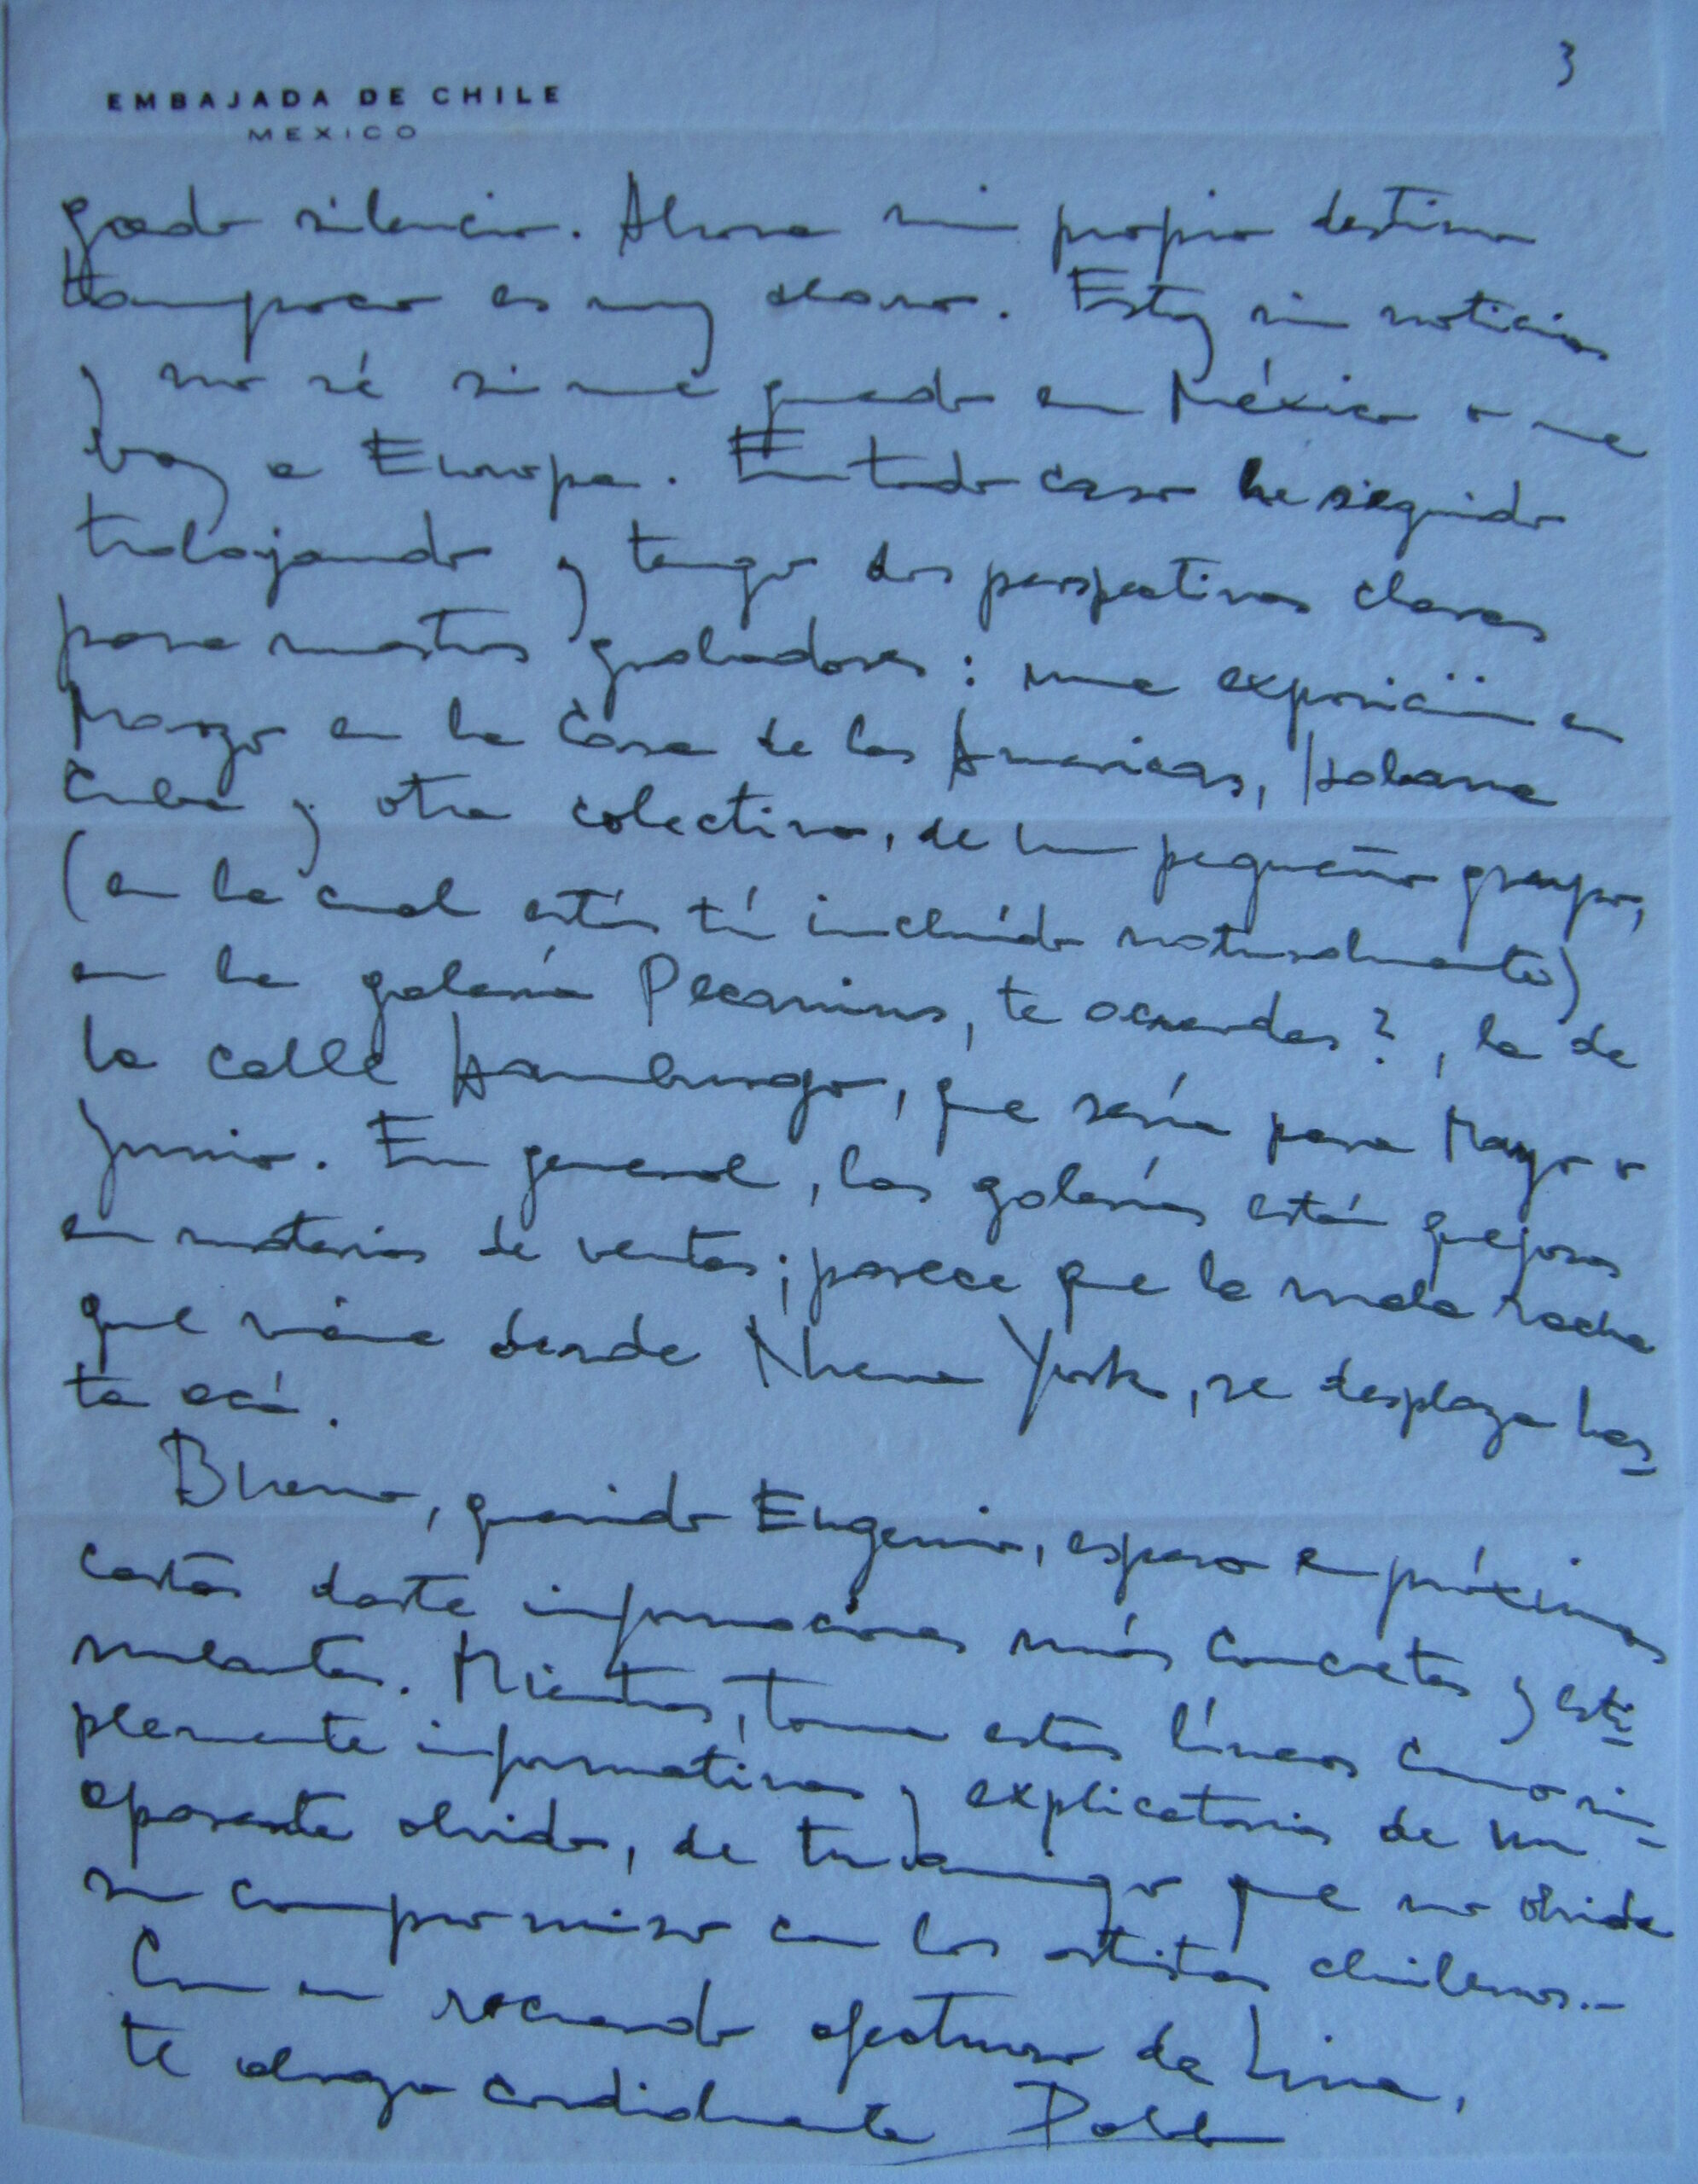 3
EMBAJADA DE CHILE
MEXICO
gado silencio. Ahora mi propio destino
tampoco es muy claro. Estoy sin noticias
y no sé si me quedo en México o me
voy a Europa. En todo caso he seguido
trabajando y tengo dos perspectivas claras
para nuestros grabadores: una exposición en
Marzo en la Casa de las Americas, Habana
Cuba y otra colectiva, de un pequeño grupo,
(en la cual estás tú incluído naturalmente)
en la galería Pecanins, te acuerdas?, la de
la calle Hamburgo, que sería para Mayo o
Junio. En general, las galerías están quejosas
en materias de ventas; parece que la mala racha
que viene desde Nueva York, se desplaza has-
ta acá.
Bueno, querido Eugenio, espero en próximas
cartas darte informaciones más concretas y esti-
mulantes. Mientras, toma estas líneas como sim-
plemente informativas y explicatorias de un
aparente olvido, de tu amigo que no olvida
su compromiso con los artistas chilenos.-
Con un recuerdo afectuoso de Lina,
te abraza cordialmente